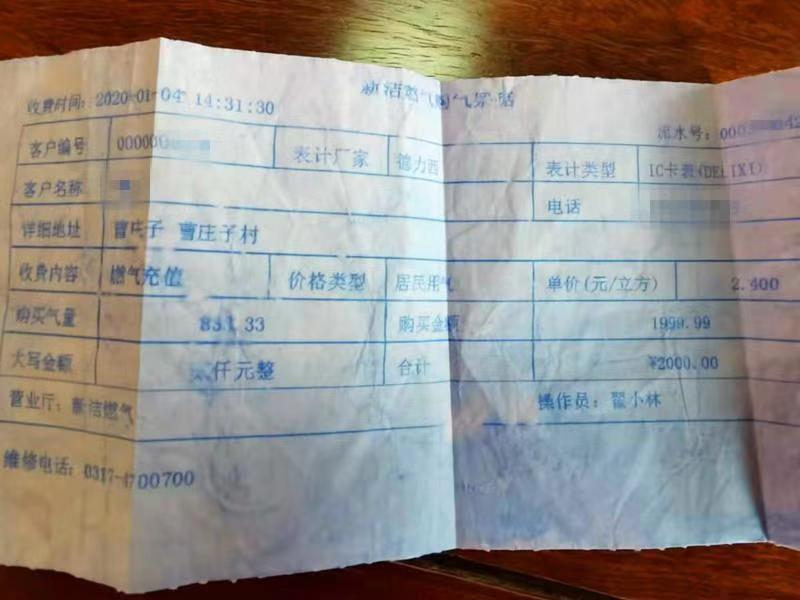 收费时间：2020-01-04 14:31:30
流水号：000
客户编号 000000 表计厂家 德力西 表计类型 IC卡表(DELIXI)
客户名称 电话
详细地址 曹庄子 曹庄子村
收费内容 燃气充值 价格类型 居民用气 单价(元/立方) 2.400
购买气量 833.33 购买金额 1999.99
大写金额 仟元整 合计 ¥2000.00
营业厅：新洁燃气 操作员：翟小林
维修电话：0317-4700700